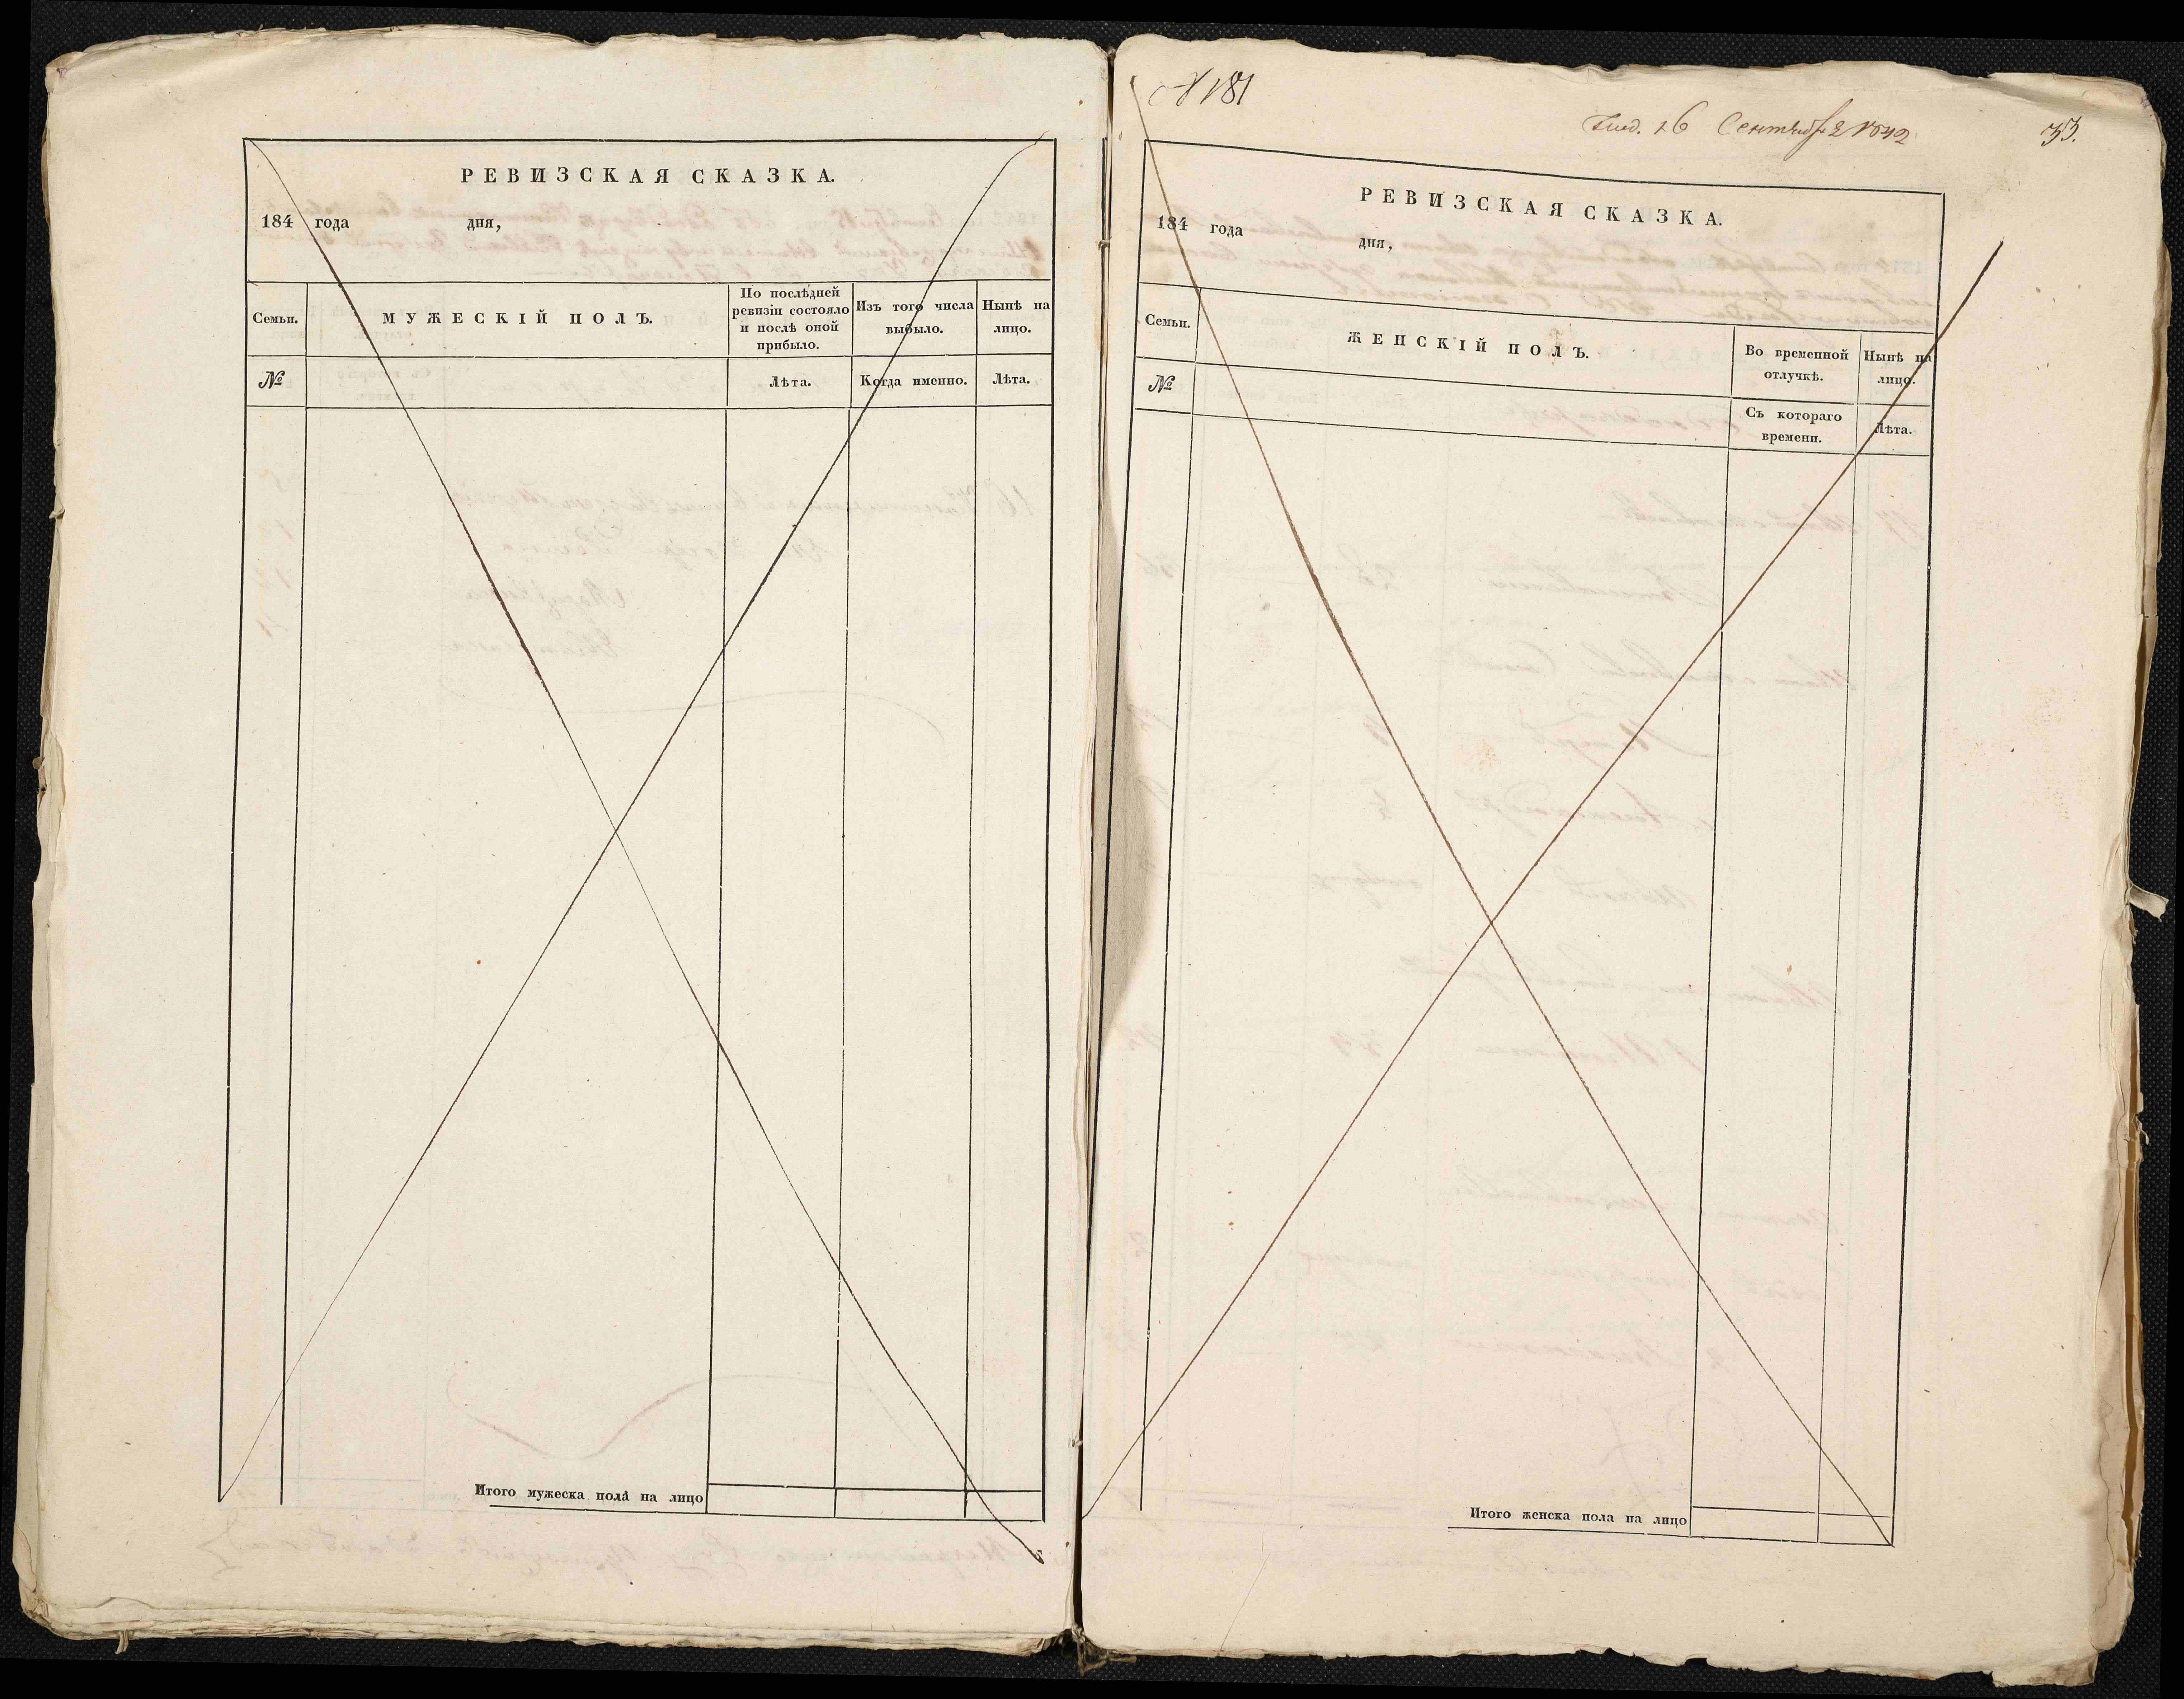 РЕВИЗСКАЯ СКАЗКА.
184 года дня,
Семьи.
МУЖЕСКІЙ ПОЛЪ.
По послѣдней
ревизіи состояло
и послѣ оной
прибыло.
Изъ того числа
выбыло.
Нынѣ на
лицо.
№
Лѣта.
Когда именно.
Лѣта.
Итого мужеска пола на лицо
№ 181
26 Сентября 1842
33.
РЕВИЗСКАЯ СКАЗКА.
184 года дня,
Семьи.
ЖЕНСКІЙ ПОЛЪ.
Во временной
отлучкѣ.
Нынѣ на
лицо.
№
Съ котораго
времени.
Лѣта.
Итого женска пола на лицо